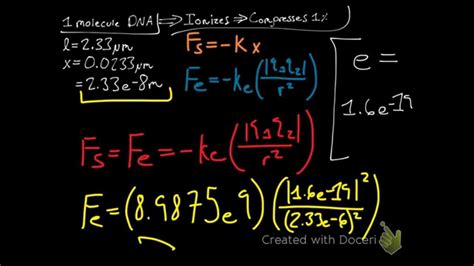 1 molecule DNA ⇒ Ionizes ⇒ Compresses 1%
l = 2.33μm
x = 0.0233μm
= 2.33e-8m
Fs = -k x
Fe = -ke(|q1q2|/r²)
e =
1.6e-19
Fs = Fe = -ke(|q1q2|/r²)
Fe = (8.9875e9)(|1.6e-19|²/(2.33e-6)²)
Created with Doceri